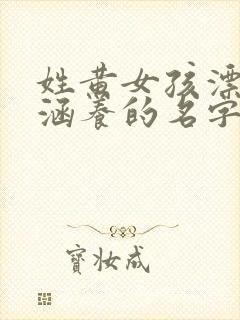 姓黄女孩漂
涵养的名字
寶妆成